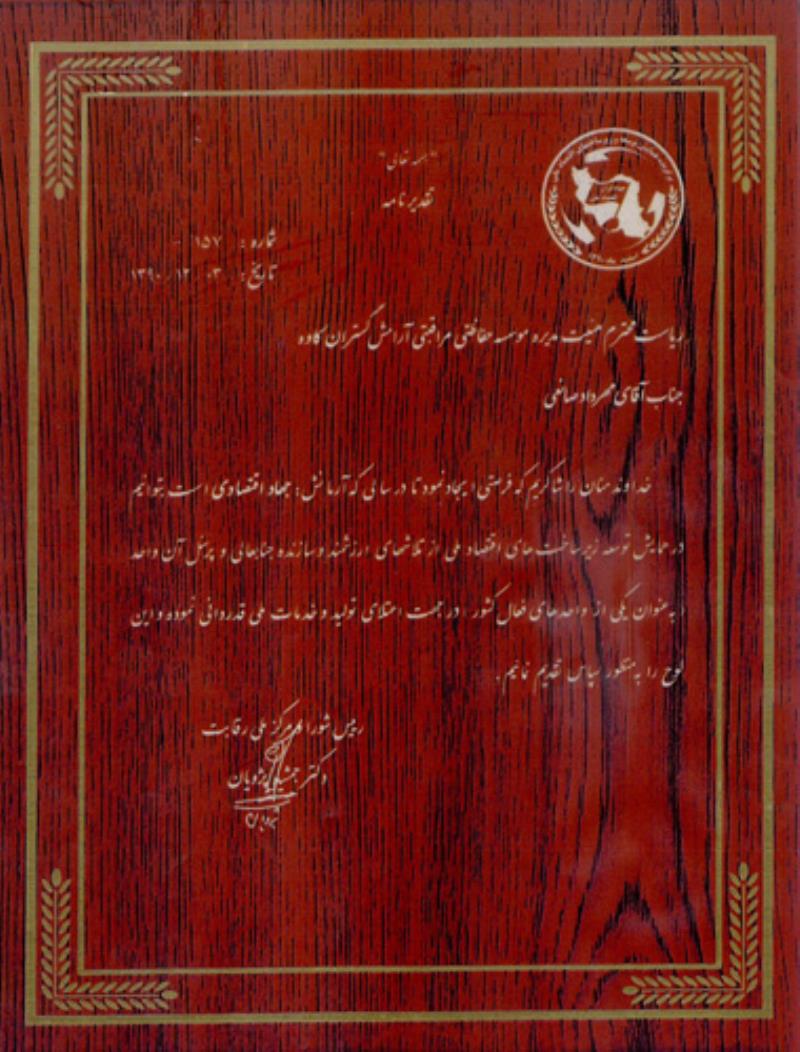 "بسمه تعالی"
تقدیر نامه
شماره : ۱۵۷
تاریخ : ۰۳ / ۱۲ / ۱۳۹۰
ریاست محترم هیئت مدیره موسسه حفاظتی مراقبتی آرامش گستران کاوه
جناب آقای مهرداد صانعی
خداوند منان را شاکریم که فرصتی ایجاد نمود تا در سالی که آرمانش : جهاد اقتصادی است بتوانیم
در همایش توسعه زیرساخت های اقتصاد ملی از تلاشهای ارزشمند و سازنده جنابعالی و پرسنل آن واحد
( به عنوان یکی از واحدهای فعال کشور ) در جهت اعتلای تولید و خدمات ملی قدردانی نموده و این
لوح را به منظور سپاس تقدیم نمائیم .
رییس شورا و مرکز ملی رقابت
دکتر جمشید پژویان